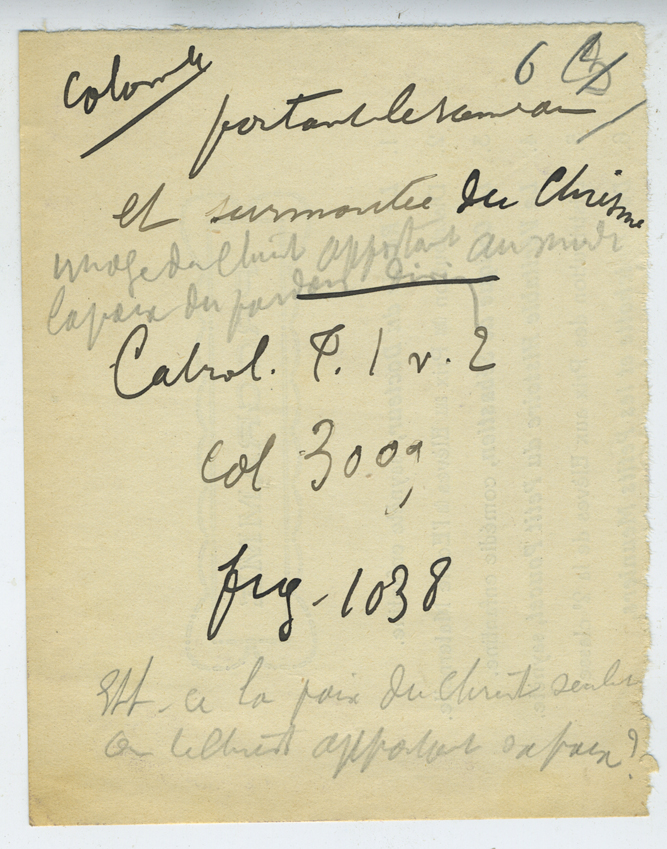 6
Colombe
portant le rameau
et surmontée du Chrisme
image du Christ apportant au monde
la paix du pardon divin
Cabrol. T. 1 v. 2
col 3009
fig - 1038
Est-ce la paix du Christ seule
ou le Christ apportant sa paix?